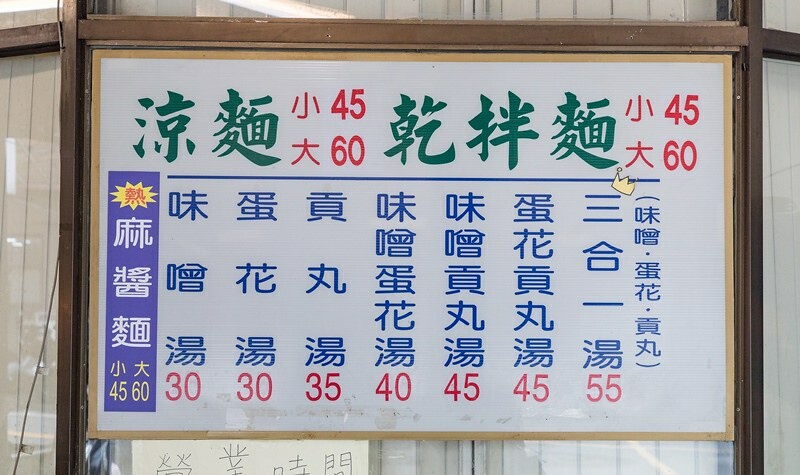 涼麵 小 45 大 60
乾拌麵 小 45 大 60
熱 麻醬麵 小 45 大 60
味噌湯 30
蛋花湯 30
貢丸湯 35
味噌蛋花湯 40
味噌貢丸湯 45
蛋花貢丸湯 45
三合一湯 55
(味噌・蛋花・貢丸)
營業時間